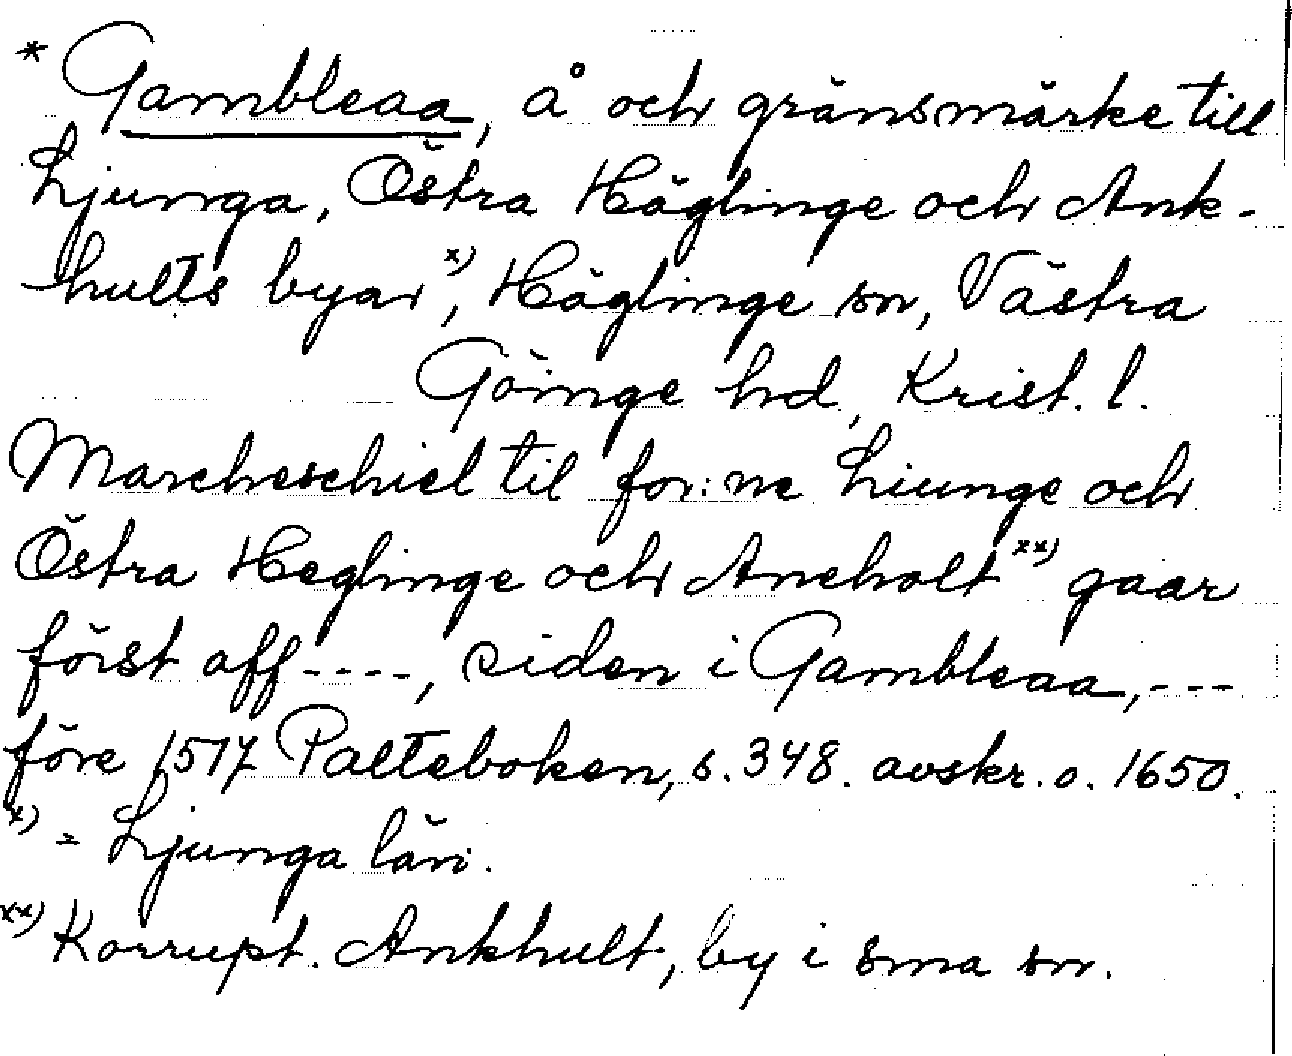 * Gambleaa, å och gränsmärke till
Ljunga, Östra Häglinge och Ank-
hults byar x), Häglinge sn, Västra
Göinge hd, Krist. l.
Marcheschiel til for:ne Liunge och
Östra Heglinge och Ancholt xx) gaar
först aff ----, siden i Gambleaa, ---
före 1517 Palteboken, s. 348. avskr. o. 1650.
x) = Ljunga län.
xx) Korrupt. Ankhult, by i sma sn.